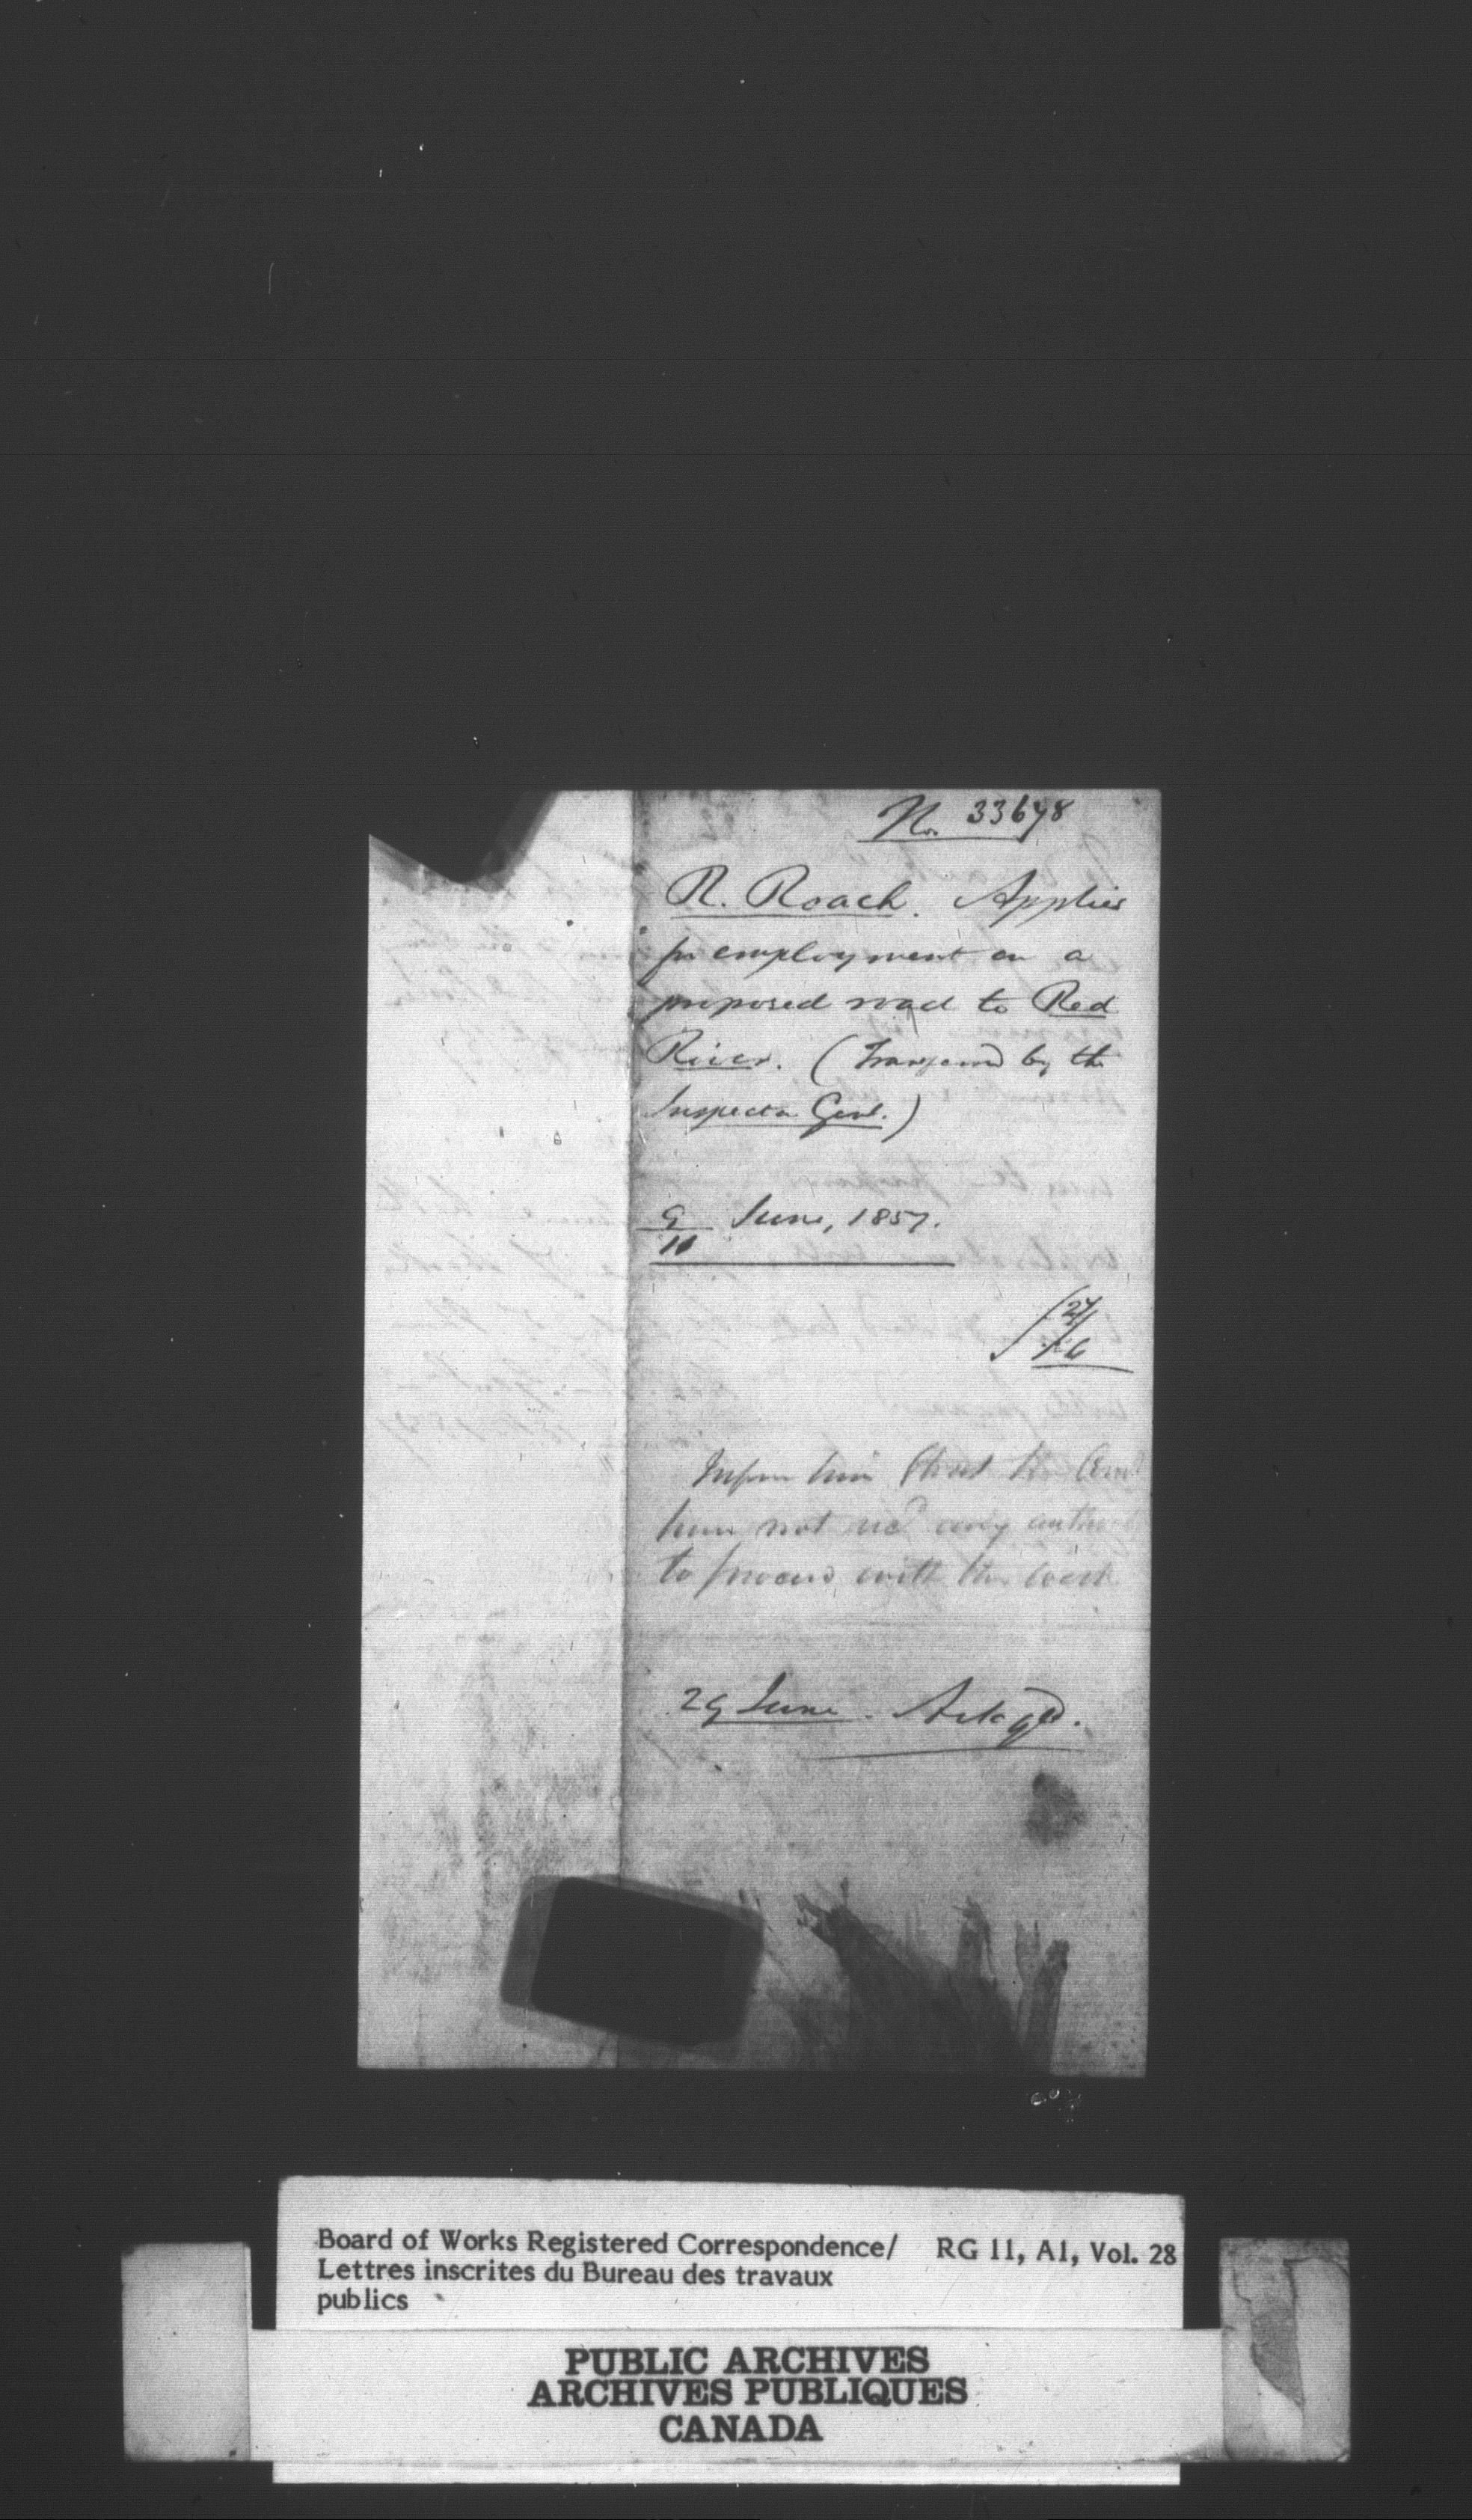 No. 33678
R. Roach. Applies
for employment on a
proposed road to Red
River. (Transferred by the
Inspector Genl.)
9/10 June, 1857.
Inform him that the Comrs
have not recd any authority
to proceed with the work
29 June. Ackgd.
Board of Works Registered Correspondence/ RG 11, A1, Vol. 28
Lettres inscrites du Bureau des travaux
publics
PUBLIC ARCHIVES
ARCHIVES PUBLIQUES
CANADA